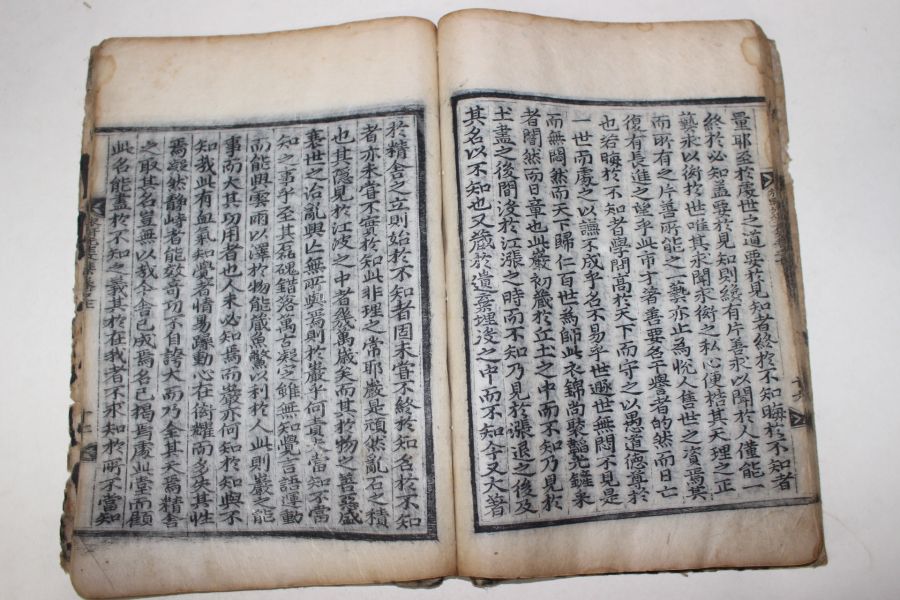 量耶至於處世之道要於見知者終於不知晦於不知者
終於必知盖要於見知則纔有片善求以聞於人僅能一
藝求以衒於世唯其求聞求衒之私心便梏其天理之正
而所有之片善所能之一藝亦止為悅人售世之資焉其
復有長進之望乎此市才者善要名平㬥者的然而日亡
也若晦於不知者學問高於天下而守之以愚道德尊於
一世而處之以謙不成乎名不易乎世遯世無悶不見是
而無悶然而天下歸仁百世為師此衣錦尚褧韜光鏟彩
者闇然而日章也此巖初藏於丘土之中而不知乃見於
土盡之後間沒於江漲之時而不知乃見於漲退之後及
其名以不知也又藏於遺藁埋沒之中而不知今又大著
於精舍之立則始於不知者固未嘗不終於知名於不知
者亦未嘗不實於知此非理之常耶巖是頑然亂石之積
也其隱見於江波之中者幾萬歲矣而其於物之善惡盛
衰世之治亂興亡無所與焉則於巖乎何責夫嘗知不當
知之事乎至其磊磈錯落萬古凝定雖無知覺言語運動
而能興雲雨以澤於物能藏魚鱉以利於人此則巖之能
事而大其功用者也人未必知焉而巖亦何知於知與不
知哉此有血氣知覺者情易躁動心在衒耀而多失其性
焉凝然静峙者能效竒功不自誇大而乃全其天焉精舍
之取其名豈無以哉今舍已成焉名已揭焉處此堂而顧
此名能盡於不知之義其於在我者不求知於所不當知